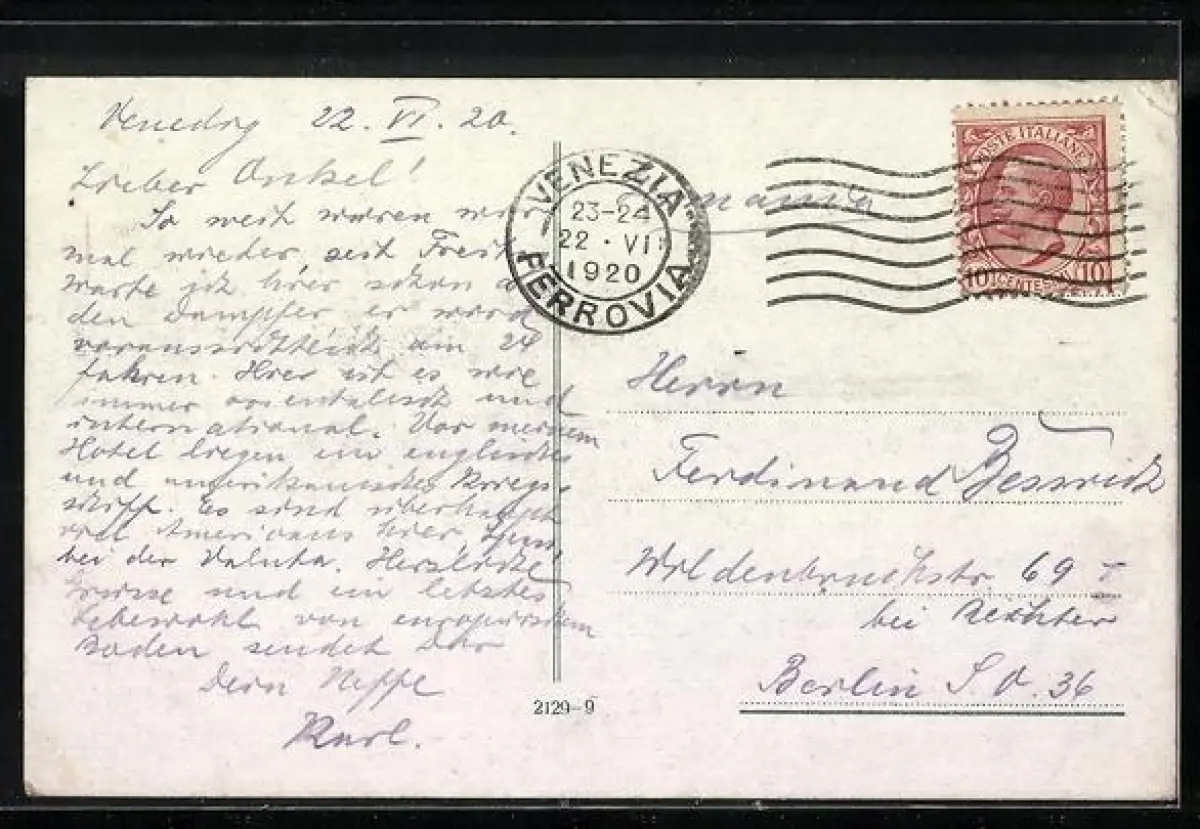 Venedig 22. VI. 20.
Lieber Onkel!
So weit wären wir
mal wieder, seit Freit
warte ich hier schon a
den Dampfer er wird
voraussichtlich am 24
fahren. Hier ist es wie
immer orientalisch und
international. Vor meinem
Hotel liegen ein englisches
und amerikanisches Kriegs-
schiff. Es sind überhaupt
viel Americans hier,
bei der Valuta. Herzliche
Grüsse und ein letztes
Lebewohl von europäischem
Boden sendet Dir
Dein Neffe
Karl.
VENEZIA
23-24
22 · VI
1920
FERROVIA
POSTE ITALIANE
10 CENTES 10
Herrn
Ferdinand
Wildenbruchstr 69 I
bei Richter
Berlin S. O. 36
2129-9